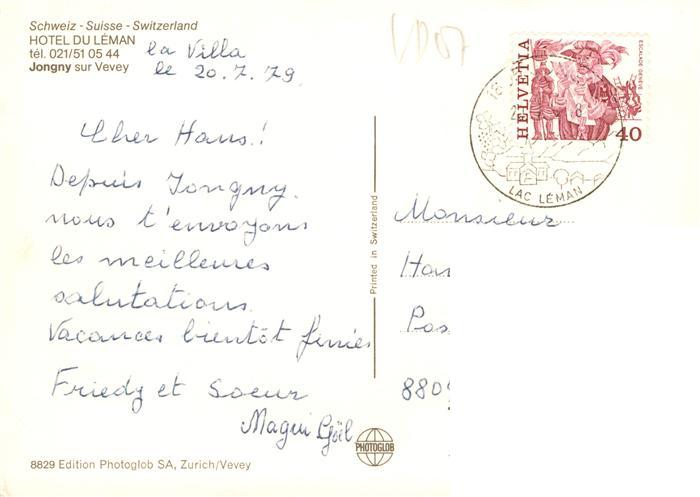 Schweiz - Suisse - Switzerland
HOTEL DU LÉMAN
tél. 021/51 05 44
Jongny sur Vevey
la Villa
le 20.7.79
Cher Hans!
Depuis Jongny.
nous t'envoyons
les meilleures
salutations.
Vacances bientôt finies
Friedy et Soeur
Magui
Printed in Switzerland
HELVETIA
ESCALADE GENÈVE
40
LAC LÉMAN
Monsieur
Han
Pos
880
PHOTOGLOB
8829 Edition Photoglob SA, Zurich/Vevey